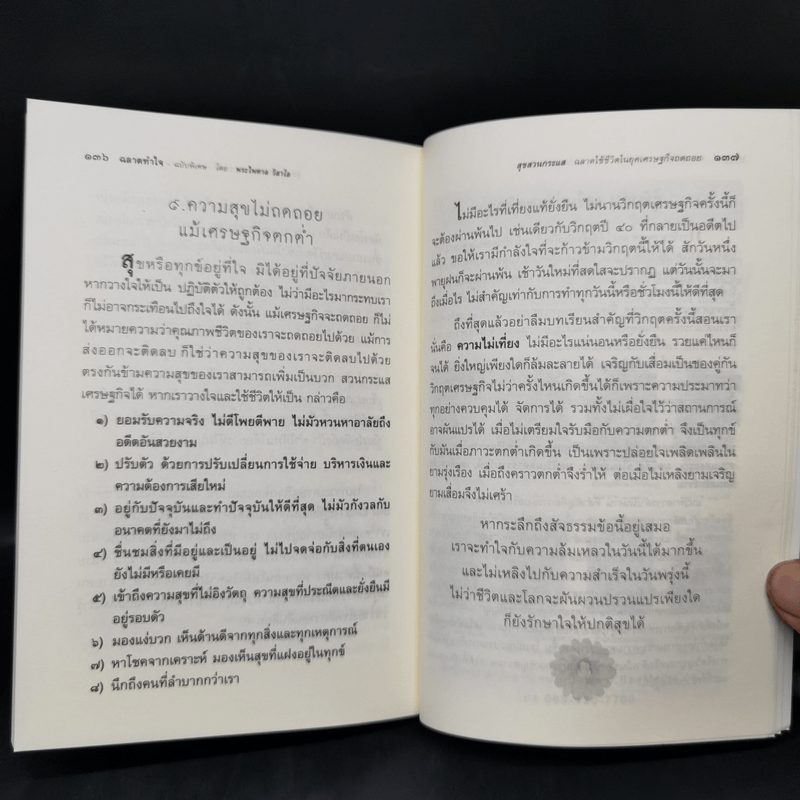 ๑๓๖ ฉลาดทำใจ · ฉบับพิเศษ · โดย · พระไพศาล วิสาโล
๙.ความสุขไม่ถดถอย
แม้เศรษฐกิจตกต่ำ
สุขหรือทุกข์อยู่ที่ใจ มิได้อยู่ที่ปัจจัยภายนอก
หากวางใจให้เป็น ปฏิบัติตัวให้ถูกต้อง ไม่ว่ามีอะไรมากระทบเรา
ก็ไม่อาจกระเทือนไปถึงใจได้ ดังนั้น แม้เศรษฐกิจจะถดถอย ก็ไม่
ได้หมายความว่าคุณภาพชีวิตของเราจะถดถอยไปด้วย แม้การ
ส่งออกจะติดลบ ก็ใช่ว่าความสุขของเราจะติดลบไปด้วย
ตรงกันข้ามความสุขของเราสามารถเพิ่มเป็นบวก สวนกระแส
เศรษฐกิจได้ หากเราวางใจและใช้ชีวิตให้เป็น กล่าวคือ
๑) ยอมรับความจริง ไม่ตีโพยตีพาย ไม่มัวหวนหาอาลัยถึง
อดีตอันสวยงาม
๒) ปรับตัว ด้วยการปรับเปลี่ยนการใช้จ่าย บริหารเงินและ
ความต้องการเสียใหม่
๓) อยู่กับปัจจุบันและทำปัจจุบันให้ดีที่สุด ไม่มัวกังวลกับ
อนาคตที่ยังมาไม่ถึง
๔) ชื่นชมสิ่งที่มีอยู่และเป็นอยู่ ไม่ไปจดจ่อกับสิ่งที่ตนเอง
ยังไม่มีหรือเคยมี
๕) เข้าถึงความสุขที่ไม่อิงวัตถุ ความสุขที่ประณีตและยั่งยืนมี
อยู่รอบตัว
๖) มองแง่บวก เห็นด้านดีจากทุกสิ่งและทุกเหตุการณ์
๗) หาโชคจากเคราะห์ มองเห็นสุขที่แฝงอยู่ในทุกข์
๘) นึกถึงคนที่ลำบากกว่าเรา
สุขสวนกระแส · ฉลาดใช้ชีวิตในยุคเศรษฐกิจถดถอย ๑๓๗
ไม่มีอะไรที่เที่ยงแท้ยั่งยืน ไม่นานวิกฤตเศรษฐกิจครั้งนี้ก็
จะต้องผ่านพ้นไป เช่นเดียวกับวิกฤตปี ๔๐ ที่กลายเป็นอดีตไป
แล้ว ขอให้เรามีกำลังใจที่จะก้าวข้ามวิกฤตนี้ให้ได้ สักวันหนึ่ง
พายุฝนก็จะผ่านพ้น เช้าวันใหม่ที่สดใสจะปรากฏ แต่วันนั้นจะมา
ถึงเมื่อไร ไม่สำคัญเท่ากับการทำทุกวันนี้หรือชั่วโมงนี้ให้ดีที่สุด
ถึงที่สุดแล้วอย่าลืมบทเรียนสำคัญที่วิกฤตครั้งนี้สอนเรา
นั่นคือ ความไม่เที่ยง ไม่มีอะไรแน่นอนหรือยั่งยืน รวยแค่ไหนก็
จนได้ ยิ่งใหญ่เพียงใดก็ล้มละลายได้ เจริญกับเสื่อมเป็นของคู่กัน
วิกฤตเศรษฐกิจไม่ว่าครั้งไหนเกิดขึ้นได้ก็เพราะความประมาทว่า
ทุกอย่างควบคุมได้ จัดการได้ รวมทั้งไม่เผื่อใจไว้ว่าสถานการณ์
อาจผันแปรได้ เมื่อไม่เตรียมใจรับมือกับความตกต่ำ จึงเป็นทุกข์
กับมันเมื่อภาวะตกต่ำเกิดขึ้น เป็นเพราะปล่อยใจเพลิดเพลินใน
ยามรุ่งเรือง เมื่อถึงคราวตกต่ำจึงร่ำไห้ ต่อเมื่อไม่เหลิงยามเจริญ
ยามเสื่อมจึงไม่เศร้า
หากระลึกถึงสัจธรรมข้อนี้อยู่เสมอ
เราจะทำใจกับความล้มเหลวในวันนี้ได้มากขึ้น
และไม่เหลิงไปกับความสำเร็จในวันพรุ่งนี้
ไม่ว่าชีวิตและโลกจะผันผวนปรวนแปรเพียงใด
ก็ยังรักษาใจให้ปกติสุขได้